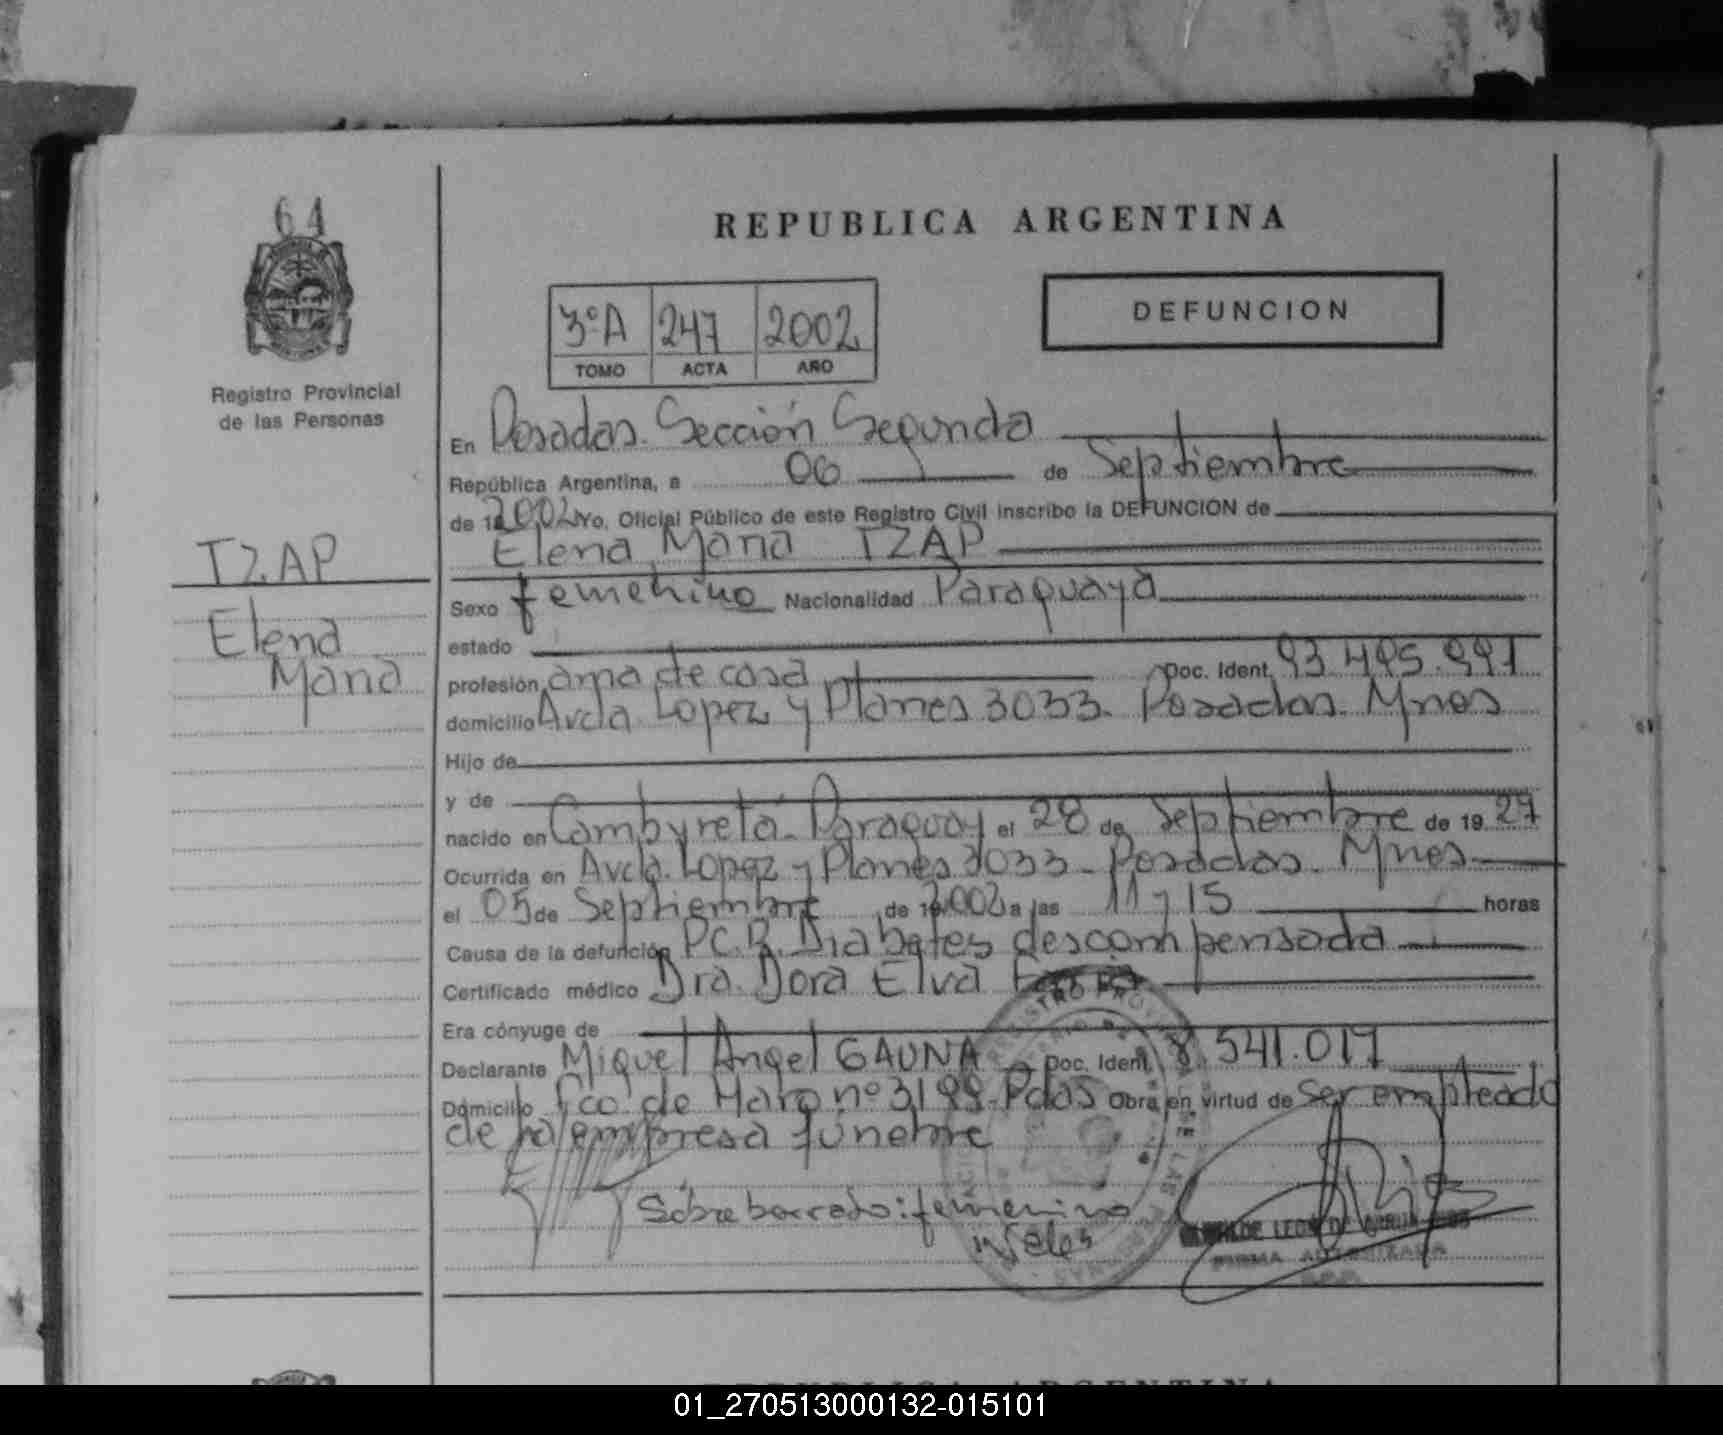 64
REPUBLICA ARGENTINA
DEFUNCION
3ºA 247 2002
TOMO ACTA AÑO
Registro Provincial
de las Personas
En Posadas. Sección Segunda
República Argentina, a 06 de Septiembre
de 2002 Yo, Oficial Público de este Registro Civil inscribo la DEFUNCION de
Elena Maria TZAP
TZAP
Elena
Maria
Sexo femenino Nacionalidad Paraguaya
estado
profesión ama de casa Doc. Ident. 93.495.991
domicilio Avda. Lopez y Planes 3033- Posadas. Mnes
Hijo de
y de
nacido en Cambyretá- Paraguay el 28 de Septiembre de 19 27
Ocurrida en Avda. Lopez y Planes 3033- Posadas. Mnes
el 05 de Septiembre de 2002 a las 11 y 15 horas
Causa de la defunción P.C.R. Diabetes descompensada
Certificado médico Dra. Dora Elva
Era cónyuge de
Declarante Miguel Angel GAUNA Doc. Ident. 8.541.017
Domicilio Fco. de Haro nº 3199- Pdas Obra en virtud de ser empleado
de la empresa fúnebre
Sobre borrado: femenino
Vale
LEON DE
FIRMA AUTORIZADA
REPUBLICA ARGENTINA
01_270513000132-015101